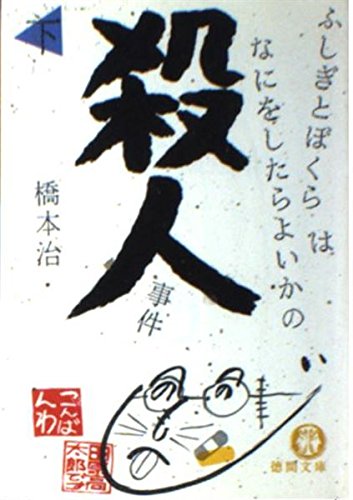 ふしぎとぼくらは
なにをしたらよいかの
殺人
事件
下
橋本治
こんば
んわ
徳間文庫